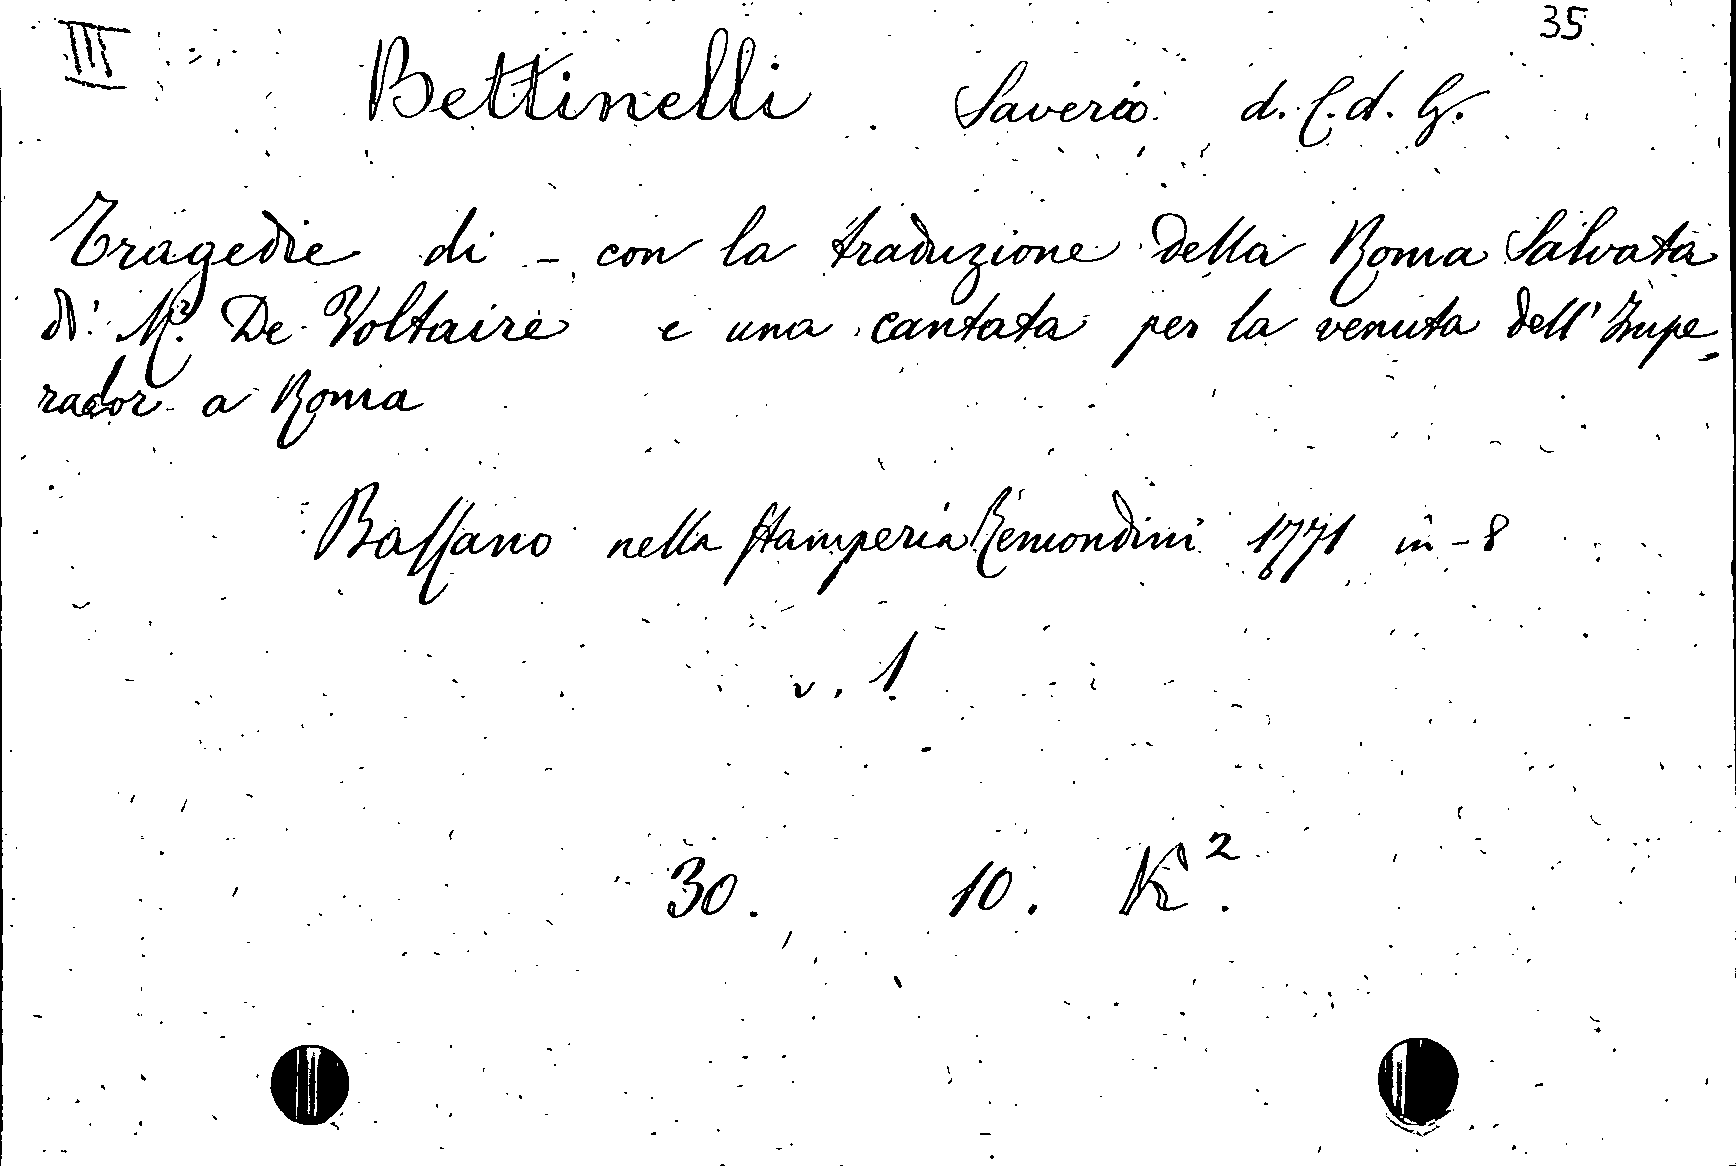 III
35
Bettinelli Saverio d. C. d. G.
Tragedie di - con la traduzione della Roma Salvata
di Mr. De Voltaire e una cantata per la venuta dell'Impe-
rador a Roma
Bassano nella stamperia Remondini 1771 in-8
v. 1
30. 10. K².